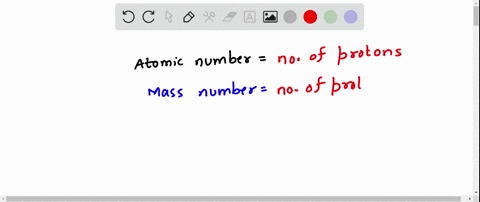 Atomic number = no. of protons
Mass number = no. of prol